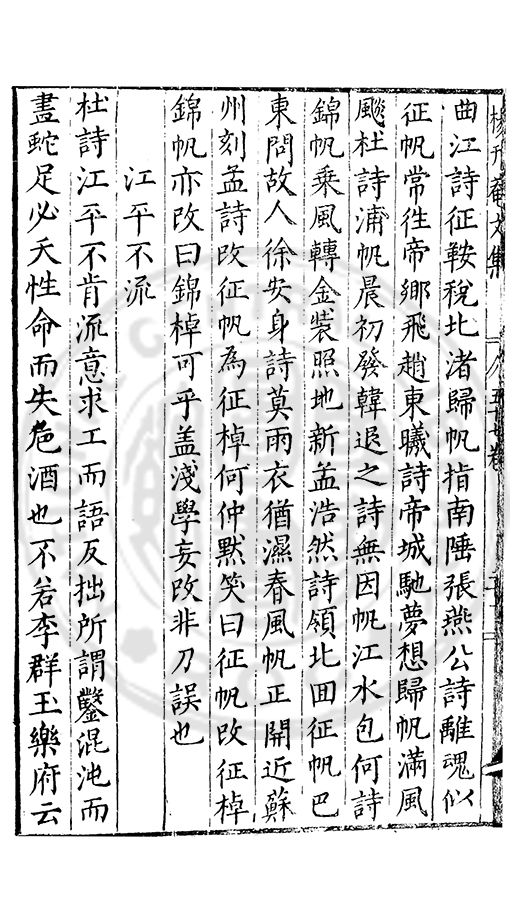 楊升菴文集 八 五十七卷
曲江詩征鞍稅北渚歸帆指南陲張燕公詩離魂似
征帆常徃帝鄉飛趙東曦詩帝城馳夢想歸帆滿風
飈杜詩浦帆晨初發韓退之詩無因帆江水包何詩
錦帆乗風轉金裝照地新孟浩然詩領北囬征帆巴
東問故人徐安身詩莫雨衣猶濕春風帆正開近蘇
州刻孟詩改征帆為征棹何仲默笑曰征帆改征棹
錦帆亦改曰錦棹可乎盖淺學妄改非刀誤也
江平不流
杜詩江平不肯流意求工而語反拙所謂鑿混沌而
畫蛇足必夭性命而失巵酒也不若李群玉樂府云